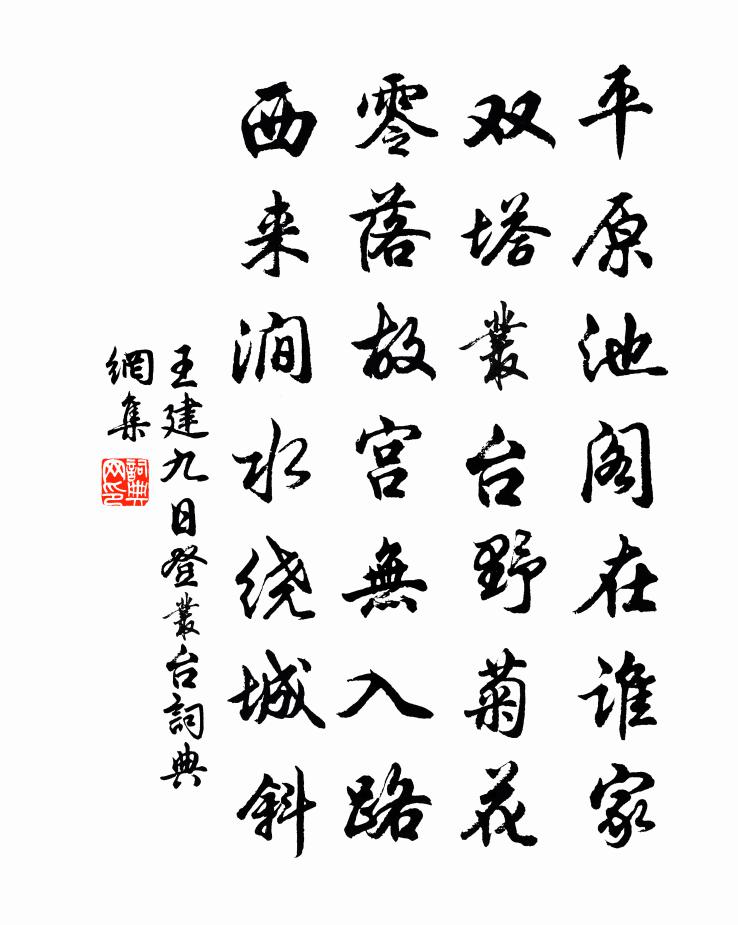 平原池阁在谁家
双塔叢台野菊花
零落故宫無入路
西来涧水绕城斜
王建九日登叢台詞典
網集
詞典網印